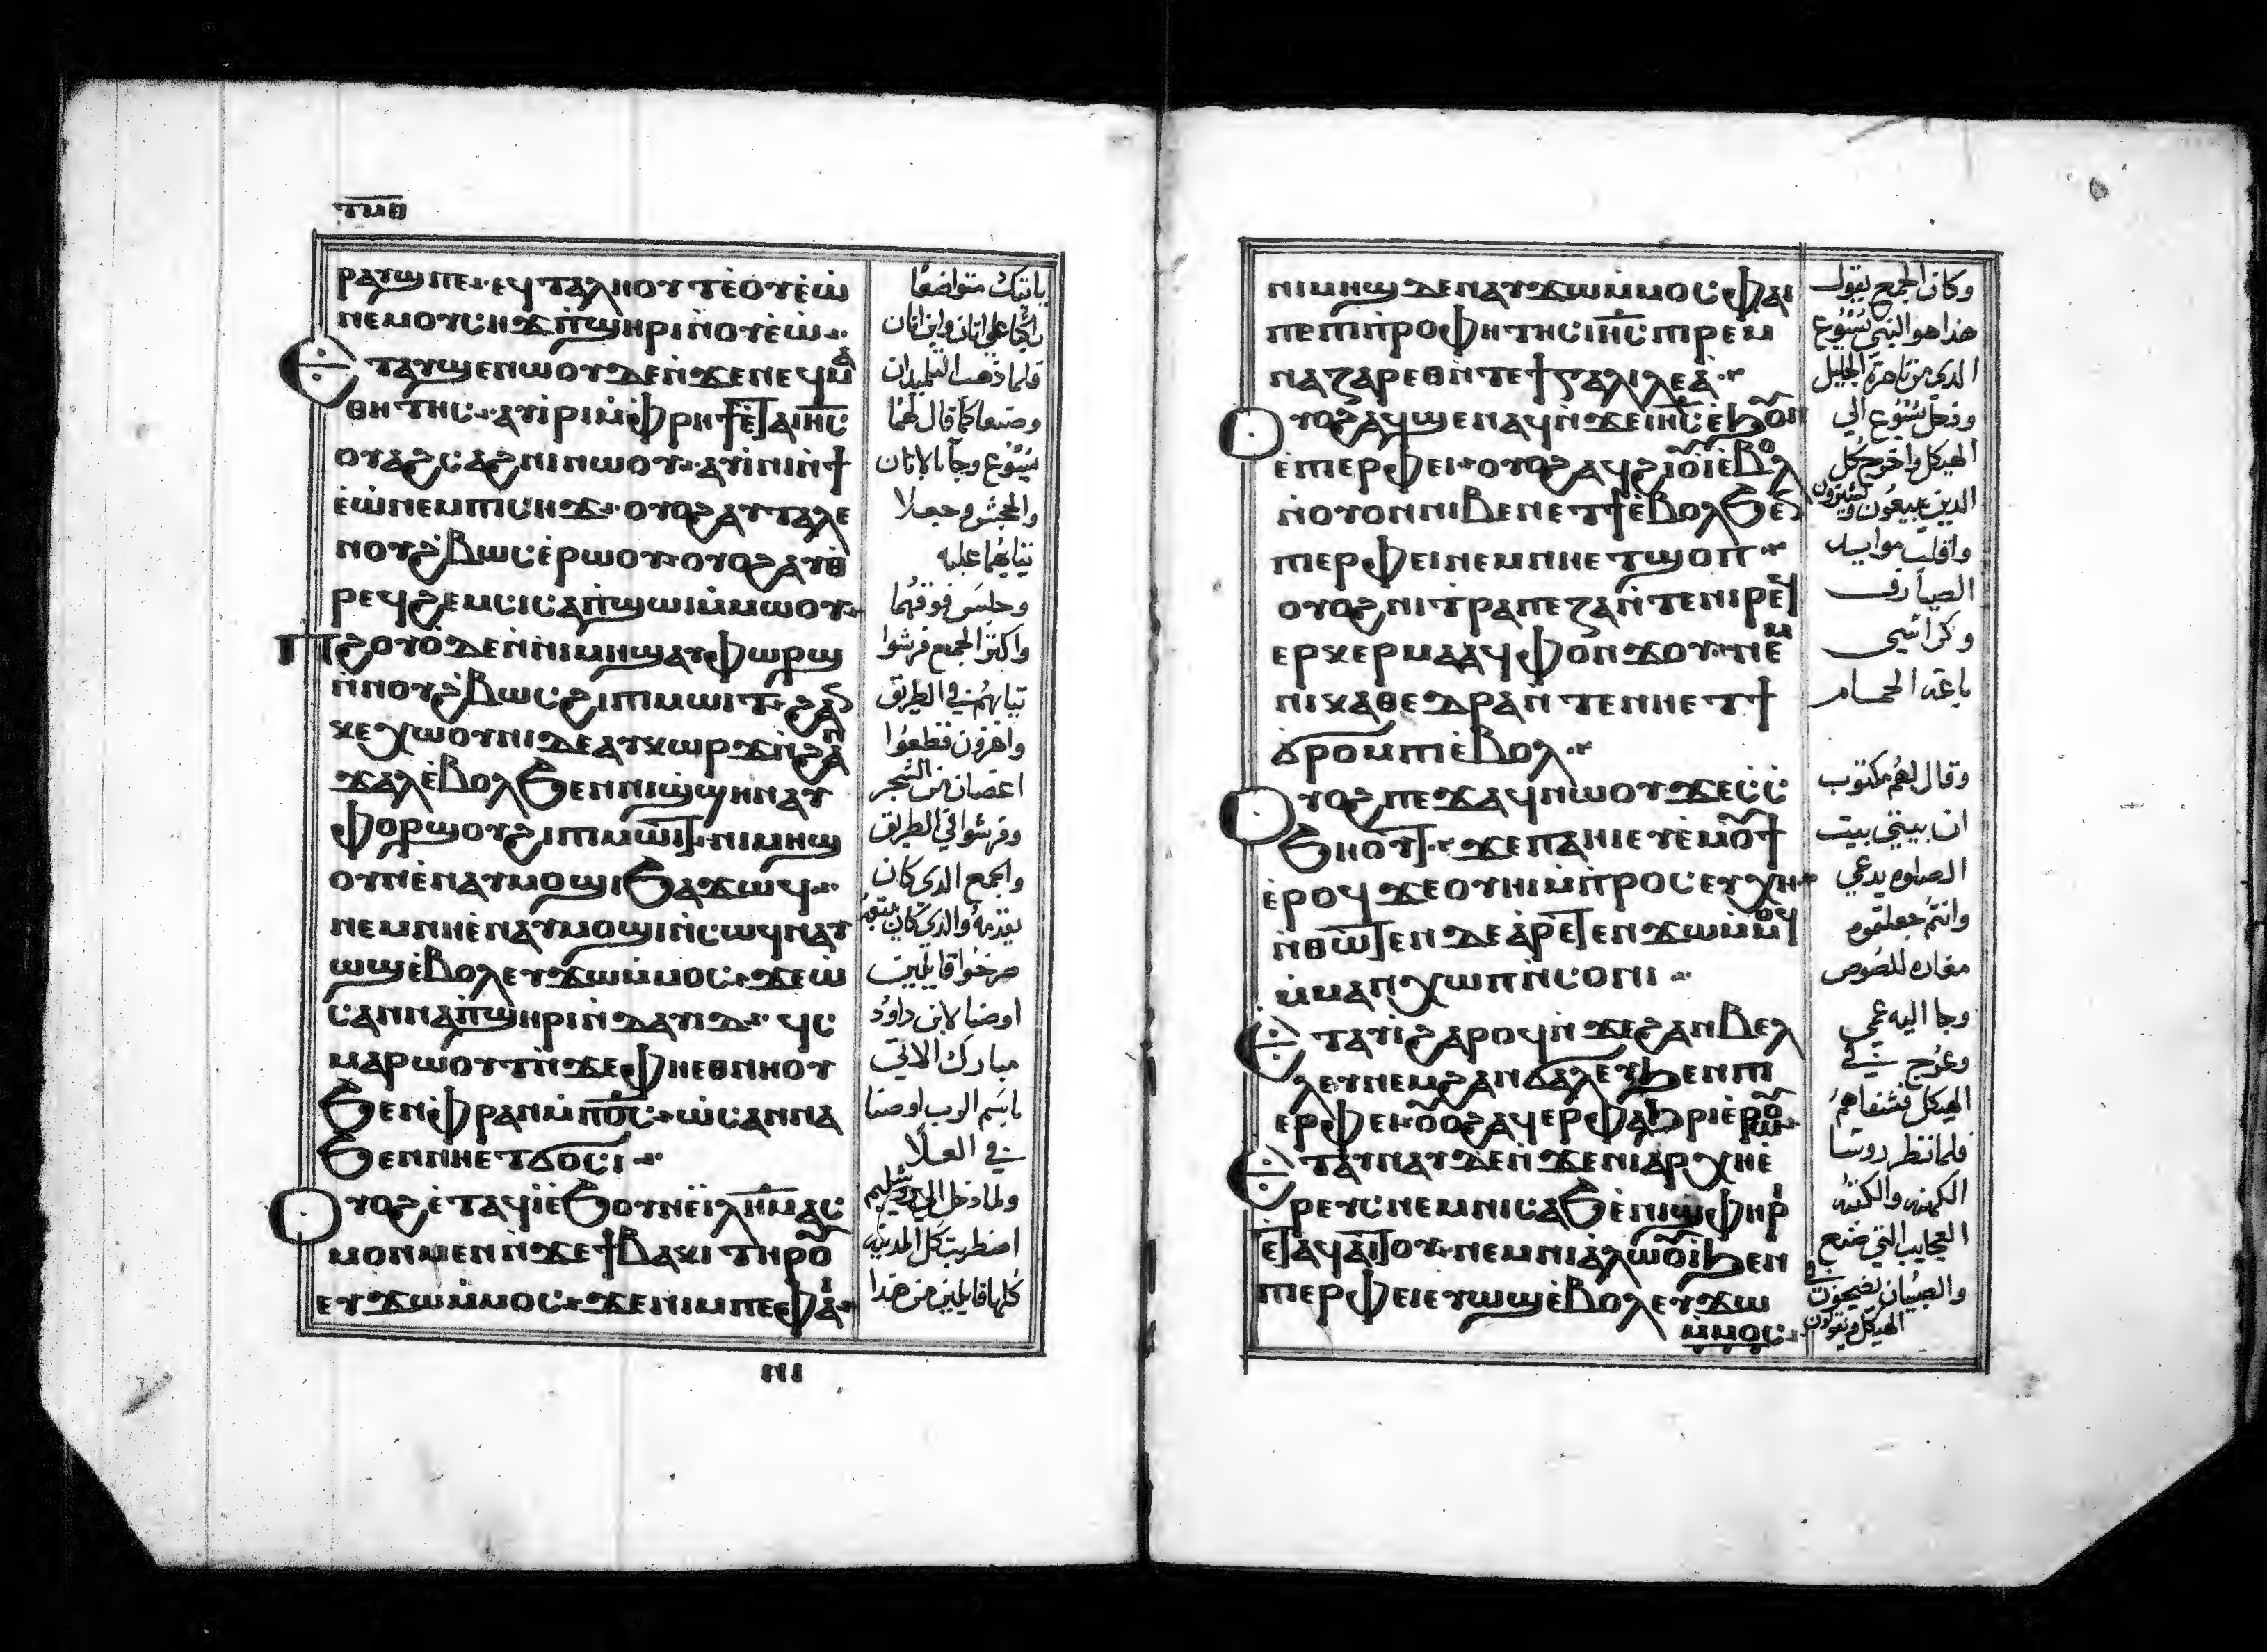 ⲧⲙⲑ
ⲣⲁⲩϣ ⲡⲉ ⲉϥⲧⲁⲗⲏⲟⲩⲧ ⲉ̀ⲟⲩⲉ̀ⲱ̀
ⲛⲉⲙ ⲟⲩⲥⲏϫ ⲡ̀ϣⲏⲣⲓ ⲛ̀ⲟⲩⲉ̀ⲱ̀
Ⲉⲧⲁⲩϣⲉⲛⲱⲟⲩ ⲇⲉ ⲛ̀ϫⲉ ⲛⲉϥⲙⲁ
ⲑⲏⲧⲏⲥ ⲁⲩⲓ̀ⲣⲓ ⲙ̀ⲫⲣⲏϯ ⲉⲧⲁ ⲓⲏⲥ
ⲟⲩⲁϩⲥⲁϩⲛⲓ ⲛⲱⲟⲩ ⲁⲩⲓ̀ⲛⲓ ⲛ̀ϯ
ⲉ̀ⲱ̀ ⲛⲉⲙ ⲡⲓⲥⲏϫ ⲟⲩⲟϩ ⲁⲩⲧⲁⲗⲉ
ⲛⲟⲩϩⲃⲱⲥ ⲉ̀ⲣⲱⲟⲩ ⲟⲩⲟϩ ⲁⲩⲑ
ⲣⲉϥϩⲉⲙⲥⲓ ⲥⲁⲡ̀ϣⲱⲓ ⲙ̀ⲙⲱⲟⲩ
Ⲡϩⲟⲩⲟ̀ ⲇⲉ ⲛ̀ⲛⲓⲙⲏϣ ⲁⲩⲫⲱⲣϣ
ⲛ̀ⲛⲟⲩϩⲃⲱⲥ ϩⲓ ⲡⲓⲙⲱⲓⲧ ϩⲁⲛ
ⲕⲉⲭⲱⲟⲩⲛⲓ ⲇⲉ ⲁⲩⲕⲱⲣϫ ⲛ̀ϩⲁⲛ
ϫⲁⲗ ⲉ̀ⲃⲟⲗ ϧⲉⲛ ⲛⲓϣ̀ϣⲏⲛ ⲁⲩ
ⲫⲟⲣϣⲟⲩ ϩⲓ ⲡⲓⲙⲱⲓⲧ ⲛⲓⲙⲏϣ
ⲟⲩⲡⲉ ⲛⲁⲩⲙⲟϣⲓ ϧⲁϫⲱϥ
ⲛⲉⲙ ⲛⲏⲉ̀ⲛⲁⲩⲙⲟϣⲓ ⲛ̀ⲥⲱϥ ⲛⲁⲩ
ⲱϣ ⲉ̀ⲃⲟⲗ ⲉⲩϫⲱ ⲙ̀ⲙⲟⲥ ϫⲉ ⲱ̀
ⲥⲁⲛⲛⲁ ⲡ̀ϣⲏⲣⲓ ⲛ̀ⲇⲁⲩⲓⲇ ϥⲥ
ⲙⲁⲣⲱⲟⲩⲧ ⲛ̀ϫⲉ ⲫⲏⲉⲑⲛⲏⲟⲩ
ϧⲉⲛ ⲫⲣⲁⲛ ⲙ̀ⲡⲟⲥ ⲱ̀ⲥⲁⲛⲛⲁ
ϧⲉⲛ ⲛⲏⲉⲧϭⲟⲥⲓ
Ⲟⲩⲟϩ ⲉ̀ⲧⲁϥⲓ̀ ⲉ̀ϧⲟⲩⲛ ⲉ̀ⲓⲗⲏⲙ ⲁⲥ
ⲙⲟⲛⲙⲉⲛ ⲛ̀ϫⲉ ϯⲃⲁⲕⲓ ⲧⲏⲣⲟⲩ
ⲉⲩϫⲱ ⲙ̀ⲙⲟⲥ ϫⲉ ⲛⲓⲙ ⲡⲉ ⲫⲁⲓ
ⲛⲓ
ياتيك متواضعًا
راكبًا على اتان وابن اتان
فلما ذهب التلميدان
وصنعا كما قال لهما
يسوع وجآ بالاتان
والجحش وجعلا
ثيابهما عليه
وجلس فوقهما
واكثر الجمع فرشوا
ثيابهم في الطريق
واخرون قطعوا
اغصان من الشجر
وفرشوا في الطريق
والجمع الدي كان
يقدمه والدي كان يتبعه
صرخوا قايلين
اوصنا لابن داود
مبارك الاتي
باسم الرب اوصنا
في العلا
ولما دخل الي يروشليم
اضطربت كل المدينه
كلها قايلين من هدا
ⲛⲓⲙⲏϣ ⲇⲉ ⲛⲁⲩϫⲱ ⲙ̀ⲙⲟⲥ ⲫⲁⲓ
ⲡⲉ ⲡⲓⲡ̀ⲣⲟⲫⲏⲧⲏⲥ ⲓⲏⲥ ⲡⲓⲣⲉⲙ
ⲛⲁⲍⲁⲣⲉⲑ ⲛ̀ⲧⲉ ϯⲅⲁⲗⲓⲗⲉⲁ̀
Ⲟⲩⲟϩ ⲁϥϣⲉⲛⲁϥ ⲛ̀ϫⲉ ⲓⲏⲥ ⲉ̀ϧⲟⲩⲛ
ⲉ̀ⲡⲓⲉⲣⲫⲉⲓ ⲟⲩⲟϩ ⲁϥϩⲓⲟⲩⲓ̀ ⲉ̀ⲃⲟⲗ
ⲛ̀ⲟⲩⲟⲛ ⲛⲓⲃⲉⲛ ⲉⲧϯ ⲉ̀ⲃⲟⲗ ϧⲉⲛ
ⲡⲓⲉⲣⲫⲉⲓ ⲛⲉⲙ ⲛⲏⲉⲧϣⲟⲡ
ⲟⲩⲟϩ ⲛⲓⲧⲣⲁⲡⲉⲍⲁ ⲛ̀ⲧⲉ ⲛⲓⲣⲉϥ
ⲉⲣⲕⲉⲣⲙⲁ ⲁϥⲫⲟⲛϫⲟⲩ ⲛⲉⲙ
ⲛⲓⲕⲁⲑⲉⲇⲣⲁ ⲛ̀ⲧⲉ ⲛⲏⲉⲧϯ
ϭⲣⲟⲙⲡⲓ ⲉ̀ⲃⲟⲗ
Ⲟⲩⲟϩ ⲡⲉϫⲁϥ ⲛⲱⲟⲩ ϫⲉ ⲥ̀ⲥ̀
ϧⲏⲟⲩⲧ ϫⲉ ⲡⲁⲏⲓ ⲉⲩⲉ̀ⲙⲟⲩϯ
ⲉ̀ⲣⲟϥ ϫⲉ ⲟⲩⲏⲓ ⲙ̀ⲡ̀ⲣⲟⲥⲉⲩⲭⲏ
ⲛ̀ⲑⲱⲧⲉⲛ ⲇⲉ ⲁ̀ⲣⲉⲧⲉⲛϫⲱ ⲙ̀ⲙⲟϥ
ⲙ̀ⲙⲁⲛⲭⲱⲡ ⲛ̀ⲥⲟⲛⲓ
Ⲉⲧⲁⲩⲓ̀ ϩⲁⲣⲟϥ ⲛ̀ϫⲉ ϩⲁⲛⲃⲉⲗ
ⲗⲉⲩ ⲛⲉⲙ ϩⲁⲛϭⲁⲗⲉⲩ ϧⲉⲛ ⲡⲓ
ⲉⲣⲫⲉⲓ ⲟⲩⲟϩ ⲁϥⲉⲣⲫⲁϧⲣⲓ ⲉ̀ⲣⲱⲟⲩ
Ⲉⲧⲁⲩⲛⲁⲩ ⲇⲉ ⲛ̀ϫⲉ ⲛⲓⲁⲣⲭⲏⲉ̀
ⲣⲉⲩⲥ ⲛⲉⲙ ⲛⲓⲥⲁϧ ⲉ̀ⲛⲓϣⲫⲏⲣⲓ
ⲉⲧⲁϥⲁⲓⲧⲟⲩ ⲛⲉⲙ ⲛⲓⲁ̀ⲗⲱⲟⲩⲓ̀ ϧⲉⲛ
ⲡⲓⲉⲣⲫⲉⲓ ⲉⲩⲱϣ ⲉ̀ⲃⲟⲗ ⲉⲩϫⲱ
ⲙ̀ⲙⲟⲥ
وكان الجمع يقول
هدا هو النبي يسوع
الدي من ناصرة الجليل
ودخل يسوع الي
الهيكل واخرج كل
الدين يبيعون ويشترون
واقلب موايد
الصيارف
وكراسي
باعة الحمام
وقال لهم مكتوب
ان بيتي بيت
الصلوه يدعي
وانتم جعلتموه
مغاره للصوص
وجا اليه عمي
وعرج في
الهيكل فشفاهم
فلما نظر روسا
الكهنه والكتبه
العجايب التي صنع
والصبيان يصيحون في
الهيكل ويقولون